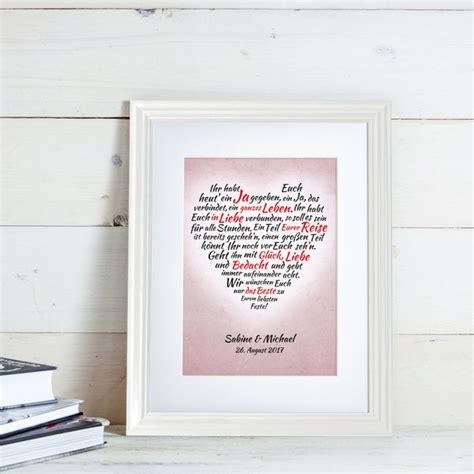 Ihr habt Euch
heut' ein Ja gegeben, ein Ja, das
verbindet, ein ganzes Leben. Ihr habt
Euch in Liebe verbunden, so soll es sein
für alle Stunden. Ein Teil Eurer Reise
ist bereits gescheh'n, einen großen Teil
könnt Ihr noch vor Euch seh'n.
Geht ihn mit Glück, Liebe
und Bedacht und gebt
immer aufeinander acht.
Wir wünschen Euch
nur das Beste zu
Eurem liebsten
Feste!
Sabine & Michael
26. August 2017